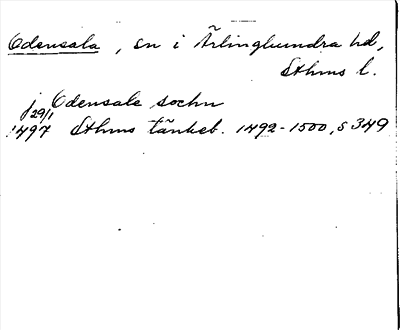 Odensala, sn i Ärlinghundra hd,
Sthms l.
j Odensale sochn
29/1 1497 Sthms tänkeb. 1492-1500, s 349